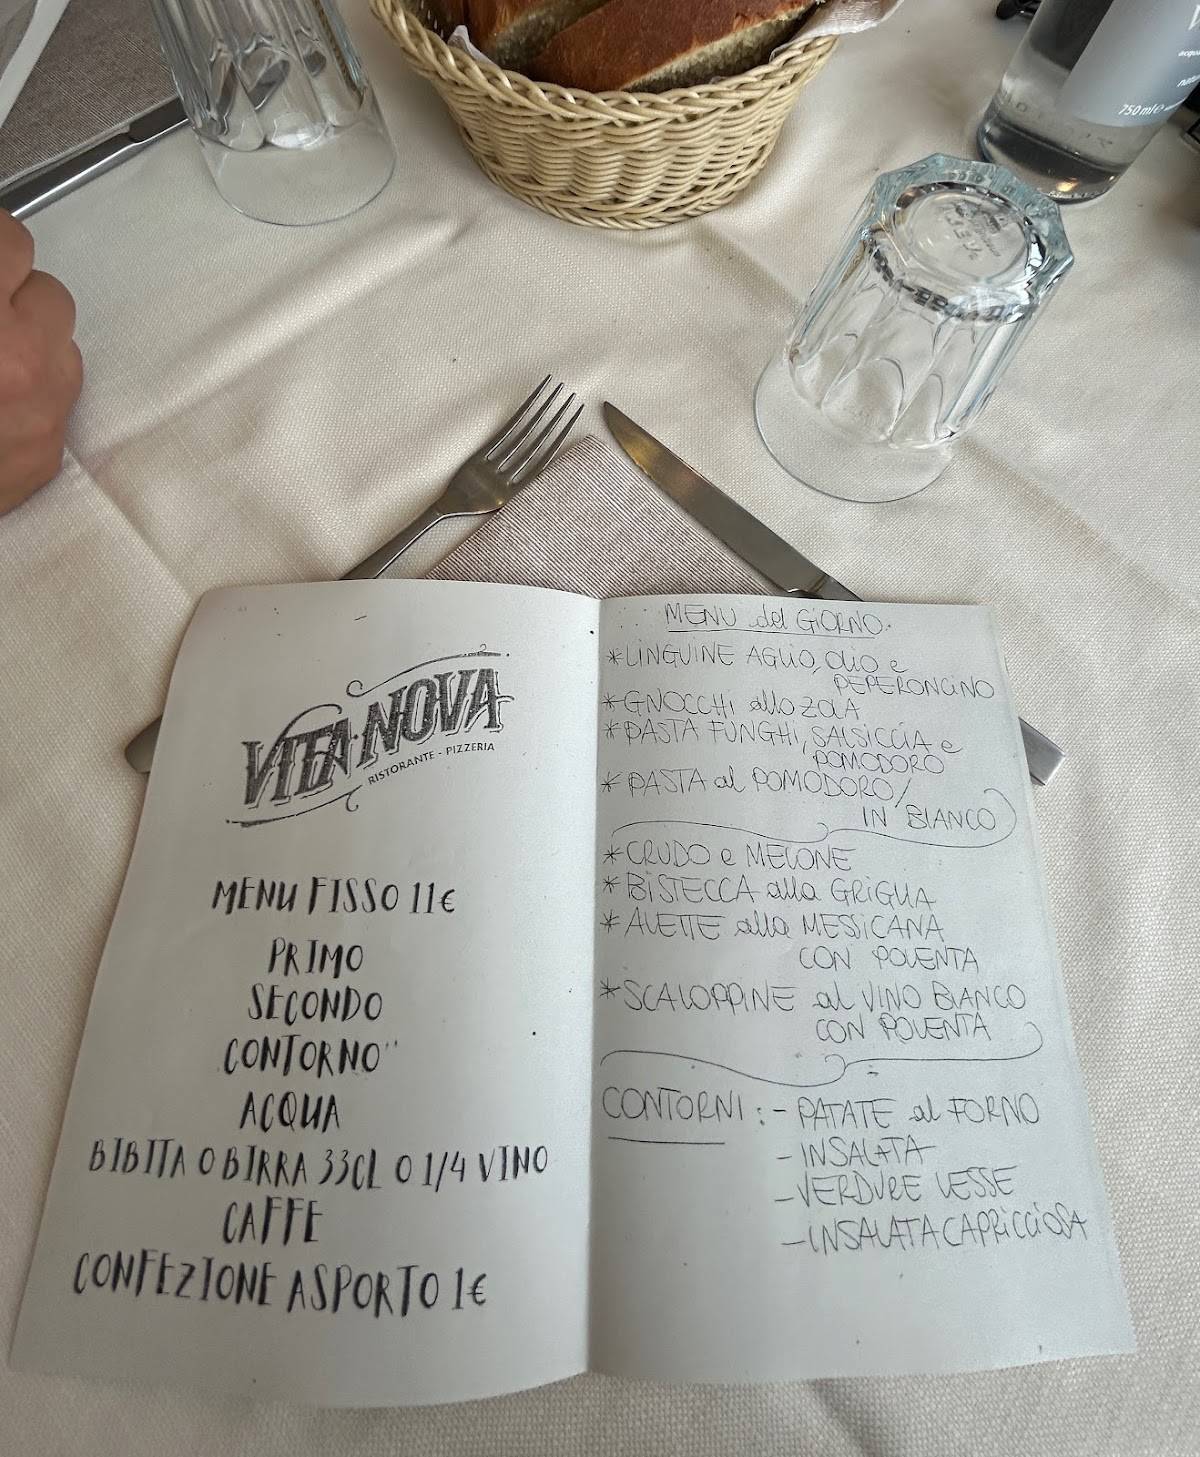 750 ml e
VITA NOVA
RISTORANTE - PIZZERIA
MENU FISSO 11€
PRIMO
SECONDO
CONTORNO
ACQUA
BIBITA O BIRRA 33CL O 1/4 VINO
CAFFE
CONFEZIONE ASPORTO 1€
MENU del GIORNO
*LINGUINE AGLIO, OLIO e
PEPERONCINO
*GNOCCHI allo ZOLA
*PASTA FUNGHI, SALSICCIA e
POMODORO
*PASTA al POMODORO/
IN BIANCO
*CRUDO e MELONE
*BISTECCA alla GRIGLIA
*ALETTE alla MESSICANA
CON POLENTA
*SCALOPPINE al VINO BIANCO
CON POLENTA
CONTORNI: - PATATE al FORNO
- INSALATA
- VERDURE LESSE
- INSALATA CAPRICCIOSA